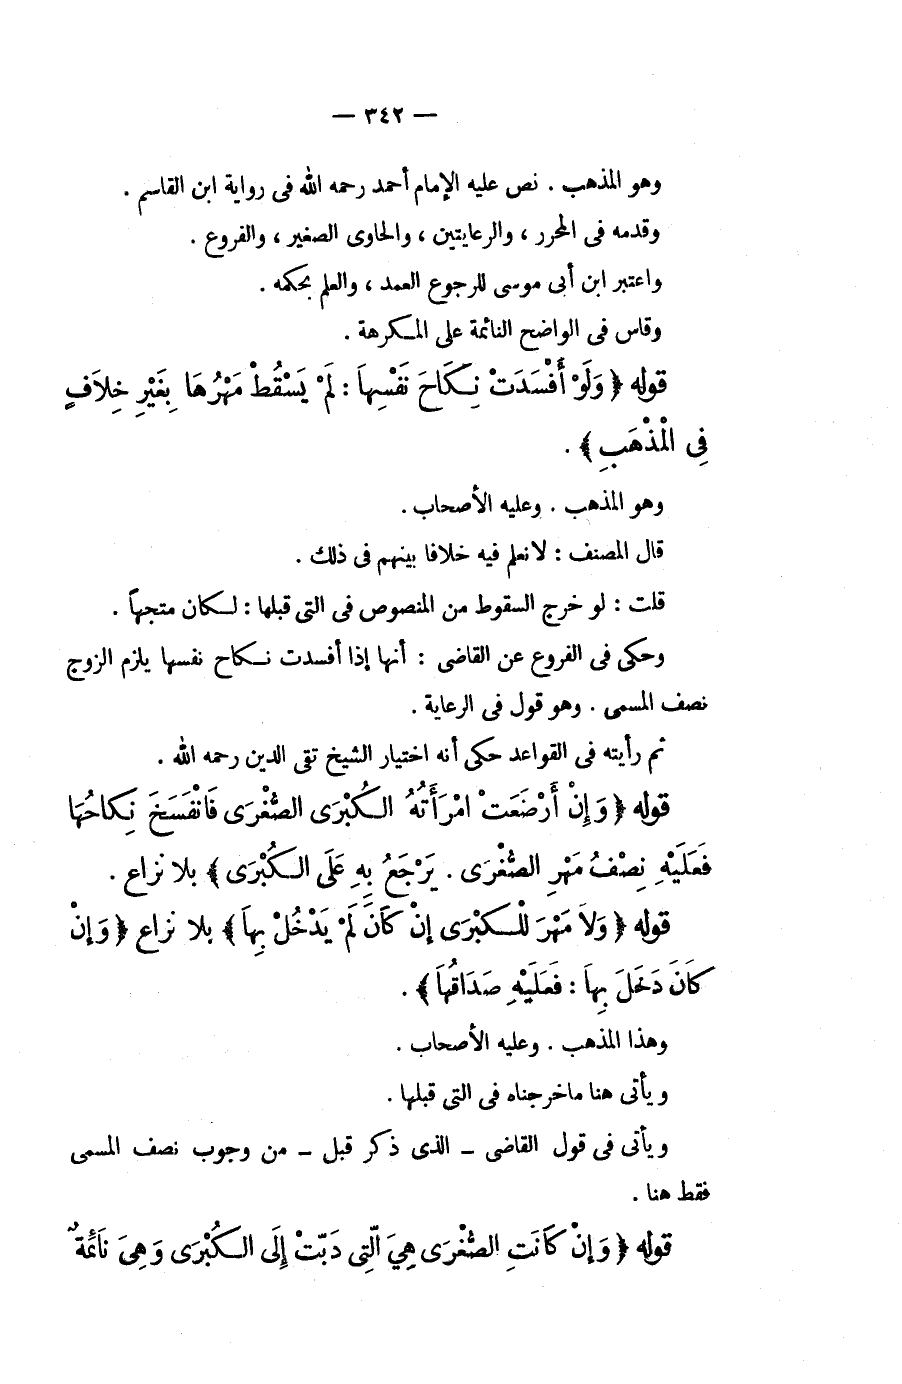 — ٣٤٢ —
وهو المذهب . نص عليه الإمام أحمد رحمه الله فى رواية ابن القاسم .
وقدمه فى المحرر ، والرعايتين ، والحاوى الصغير ، والفروع .
واعتبر ابن أبى موسى للرجوع العمد ، والعلم بحكمه .
وقاس فى الواضح النائمة على المكرهة .
قوله ﴿ وَلَوْ أَفْسَدَتْ نِكَاحَ نَفْسِهاَ : لَمْ يَسْقُطْ مَهْرُهَا بِغَيْرِ خِلاَفٍ
فِى الْمَذْهَبِ ﴾ .
وهو المذهب . وعليه الأصحاب .
قال المصنف : لا نعلم فيه خلافا بينهم فى ذلك .
قلت : لو خرج السقوط من المنصوص فى التى قبلها : لكان متجهاً .
وحكى فى الفروع عن القاضى : أنها إذا أفسدت نكاح نفسها يلزم الزوج
نصف المسمى . وهو قول فى الرعاية .
ثم رأيته فى القواعد حكى أنه اختيار الشيخ تقى الدين رحمه الله .
قوله ﴿ وَإِنْ أَرْضَعَتْ امْرَأَتُهُ الْكُبْرَى الصُّغْرَى فَانْفَسَخَ نِكَاحُهَا
فَعَلَيْهِ نِصْفُ مَهْرِ الصُّغْرَى . يَرْجَعُ بِهِ عَلَى الْكُبْرَى ﴾ بلا نزاع .
قوله ﴿ وَلاَ مَهْرَ لِلْكُبْرَى إِنْ كَانَ لَمْ يَدْخُلْ بِهاَ ﴾ بلا نزاع ﴿ وَإِنْ
كَانَ دَخَلَ بِهاَ : فَعَلَيْهِ صَدَاقُهاَ ﴾ .
وهذا المذهب . وعليه الأصحاب .
ويأتى هنا ماخرجناه فى التى قبلها .
ويأتى فى قول القاضى – الذى ذكر قبل – من وجوب نصف المسمى
فقط هنا .
قوله ﴿ وَإِنْ كَانَتِ الصُّغْرَى هِيَ الَّتِى دَبَّتْ إِلَى الْكُبْرَى وَهِىَ نَائِمَةٌ